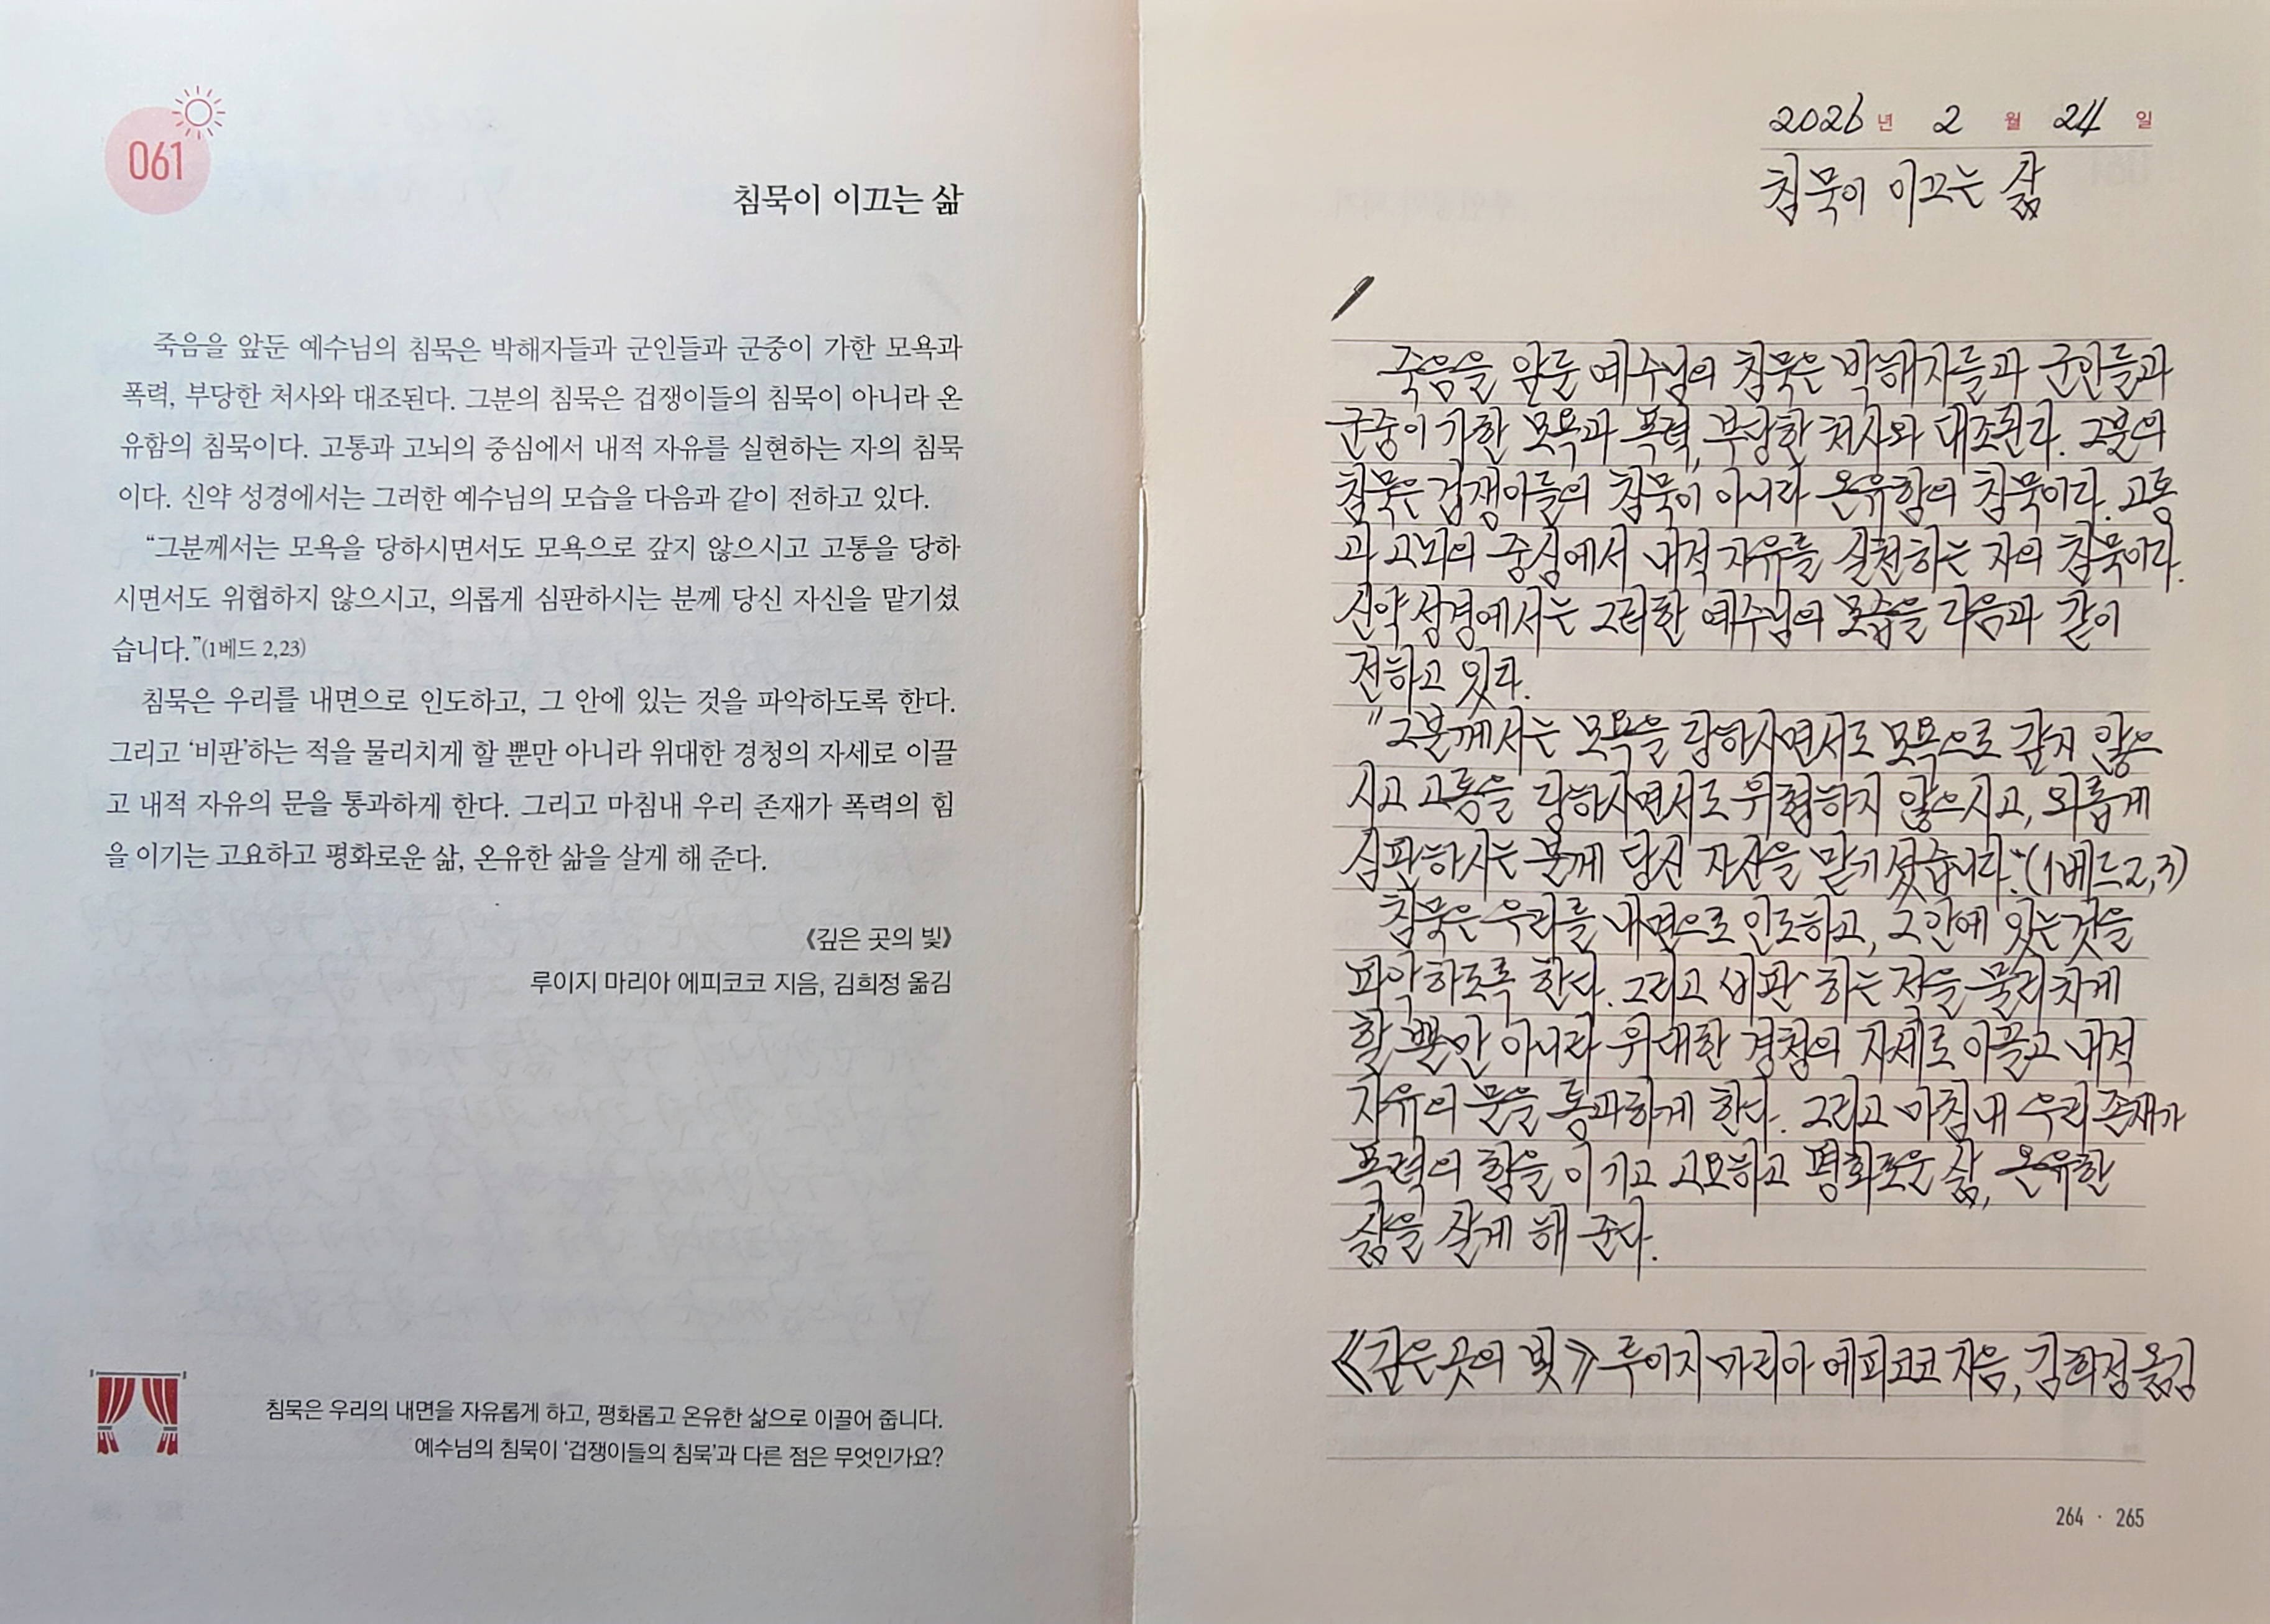 061
침묵이 이끄는 삶
죽음을 앞둔 예수님의 침묵은 박해자들과 군인들과 군중이 가한 모욕과
폭력, 부당한 처사와 대조된다. 그분의 침묵은 겁쟁이들의 침묵이 아니라 온
유함의 침묵이다. 고통과 고뇌의 중심에서 내적 자유를 실현하는 자의 침묵
이다. 신약 성경에서는 그러한 예수님의 모습을 다음과 같이 전하고 있다.
“그분께서는 모욕을 당하시면서도 모욕으로 갚지 않으시고 고통을 당하
시면서도 위협하지 않으시고, 의롭게 심판하시는 분께 당신 자신을 맡기셨
습니다.”(1베드 2,23)
침묵은 우리를 내면으로 인도하고, 그 안에 있는 것을 파악하도록 한다.
그리고 ‘비판’하는 적을 물리치게 할 뿐만 아니라 위대한 경청의 자세로 이끌
고 내적 자유의 문을 통과하게 한다. 그리고 마침내 우리 존재가 폭력의 힘
을 이기는 고요하고 평화로운 삶, 온유한 삶을 살게 해 준다.
《깊은 곳의 빛》
루이지 마리아 에피코코 지음, 김희정 옮김
침묵은 우리의 내면을 자유롭게 하고, 평화롭고 온유한 삶으로 이끌어 줍니다.
예수님의 침묵이 ‘겁쟁이들의 침묵’과 다른 점은 무엇인가요?
2026년 2월 24일
침묵이 이끄는 삶
죽음을 앞둔 예수님의 침묵은 박해자들과 군인들과
군중이 가한 모욕과 폭력, 부당한 처사와 대조된다. 그분의
침묵은 겁쟁이들의 침묵이 아니라 온유함의 침묵이다. 고통
과 고뇌의 중심에서 내적 자유를 실천하는 자의 침묵이다.
신약 성경에서는 그러한 예수님의 모습을 다음과 같이
전하고 있다.
"그분께서는 모욕을 당하시면서도 모욕으로 갚지 않으
시고 고통을 당하시면서도 위협하지 않으시고, 의롭게
심판하시는 분께 당신 자신을 맡기셨습니다."(1베드2,3)
침묵은 우리를 내면으로 인도하고, 그 안에 있는 것을
파악하도록 한다. 그리고 '비판'하는 적을 물리치게
할 뿐만 아니라 위대한 경청의 자세로 이끌고 내적
자유의 문을 통과하게 한다. 그리고 마침내 우리 존재가
폭력의 힘을 이기고 고요하고 평화로운 삶, 온유한
삶을 살게 해 준다.
《깊은 곳의 빛》 루이지 마리아 에피코코 지음, 김희정 옮김
264 · 265